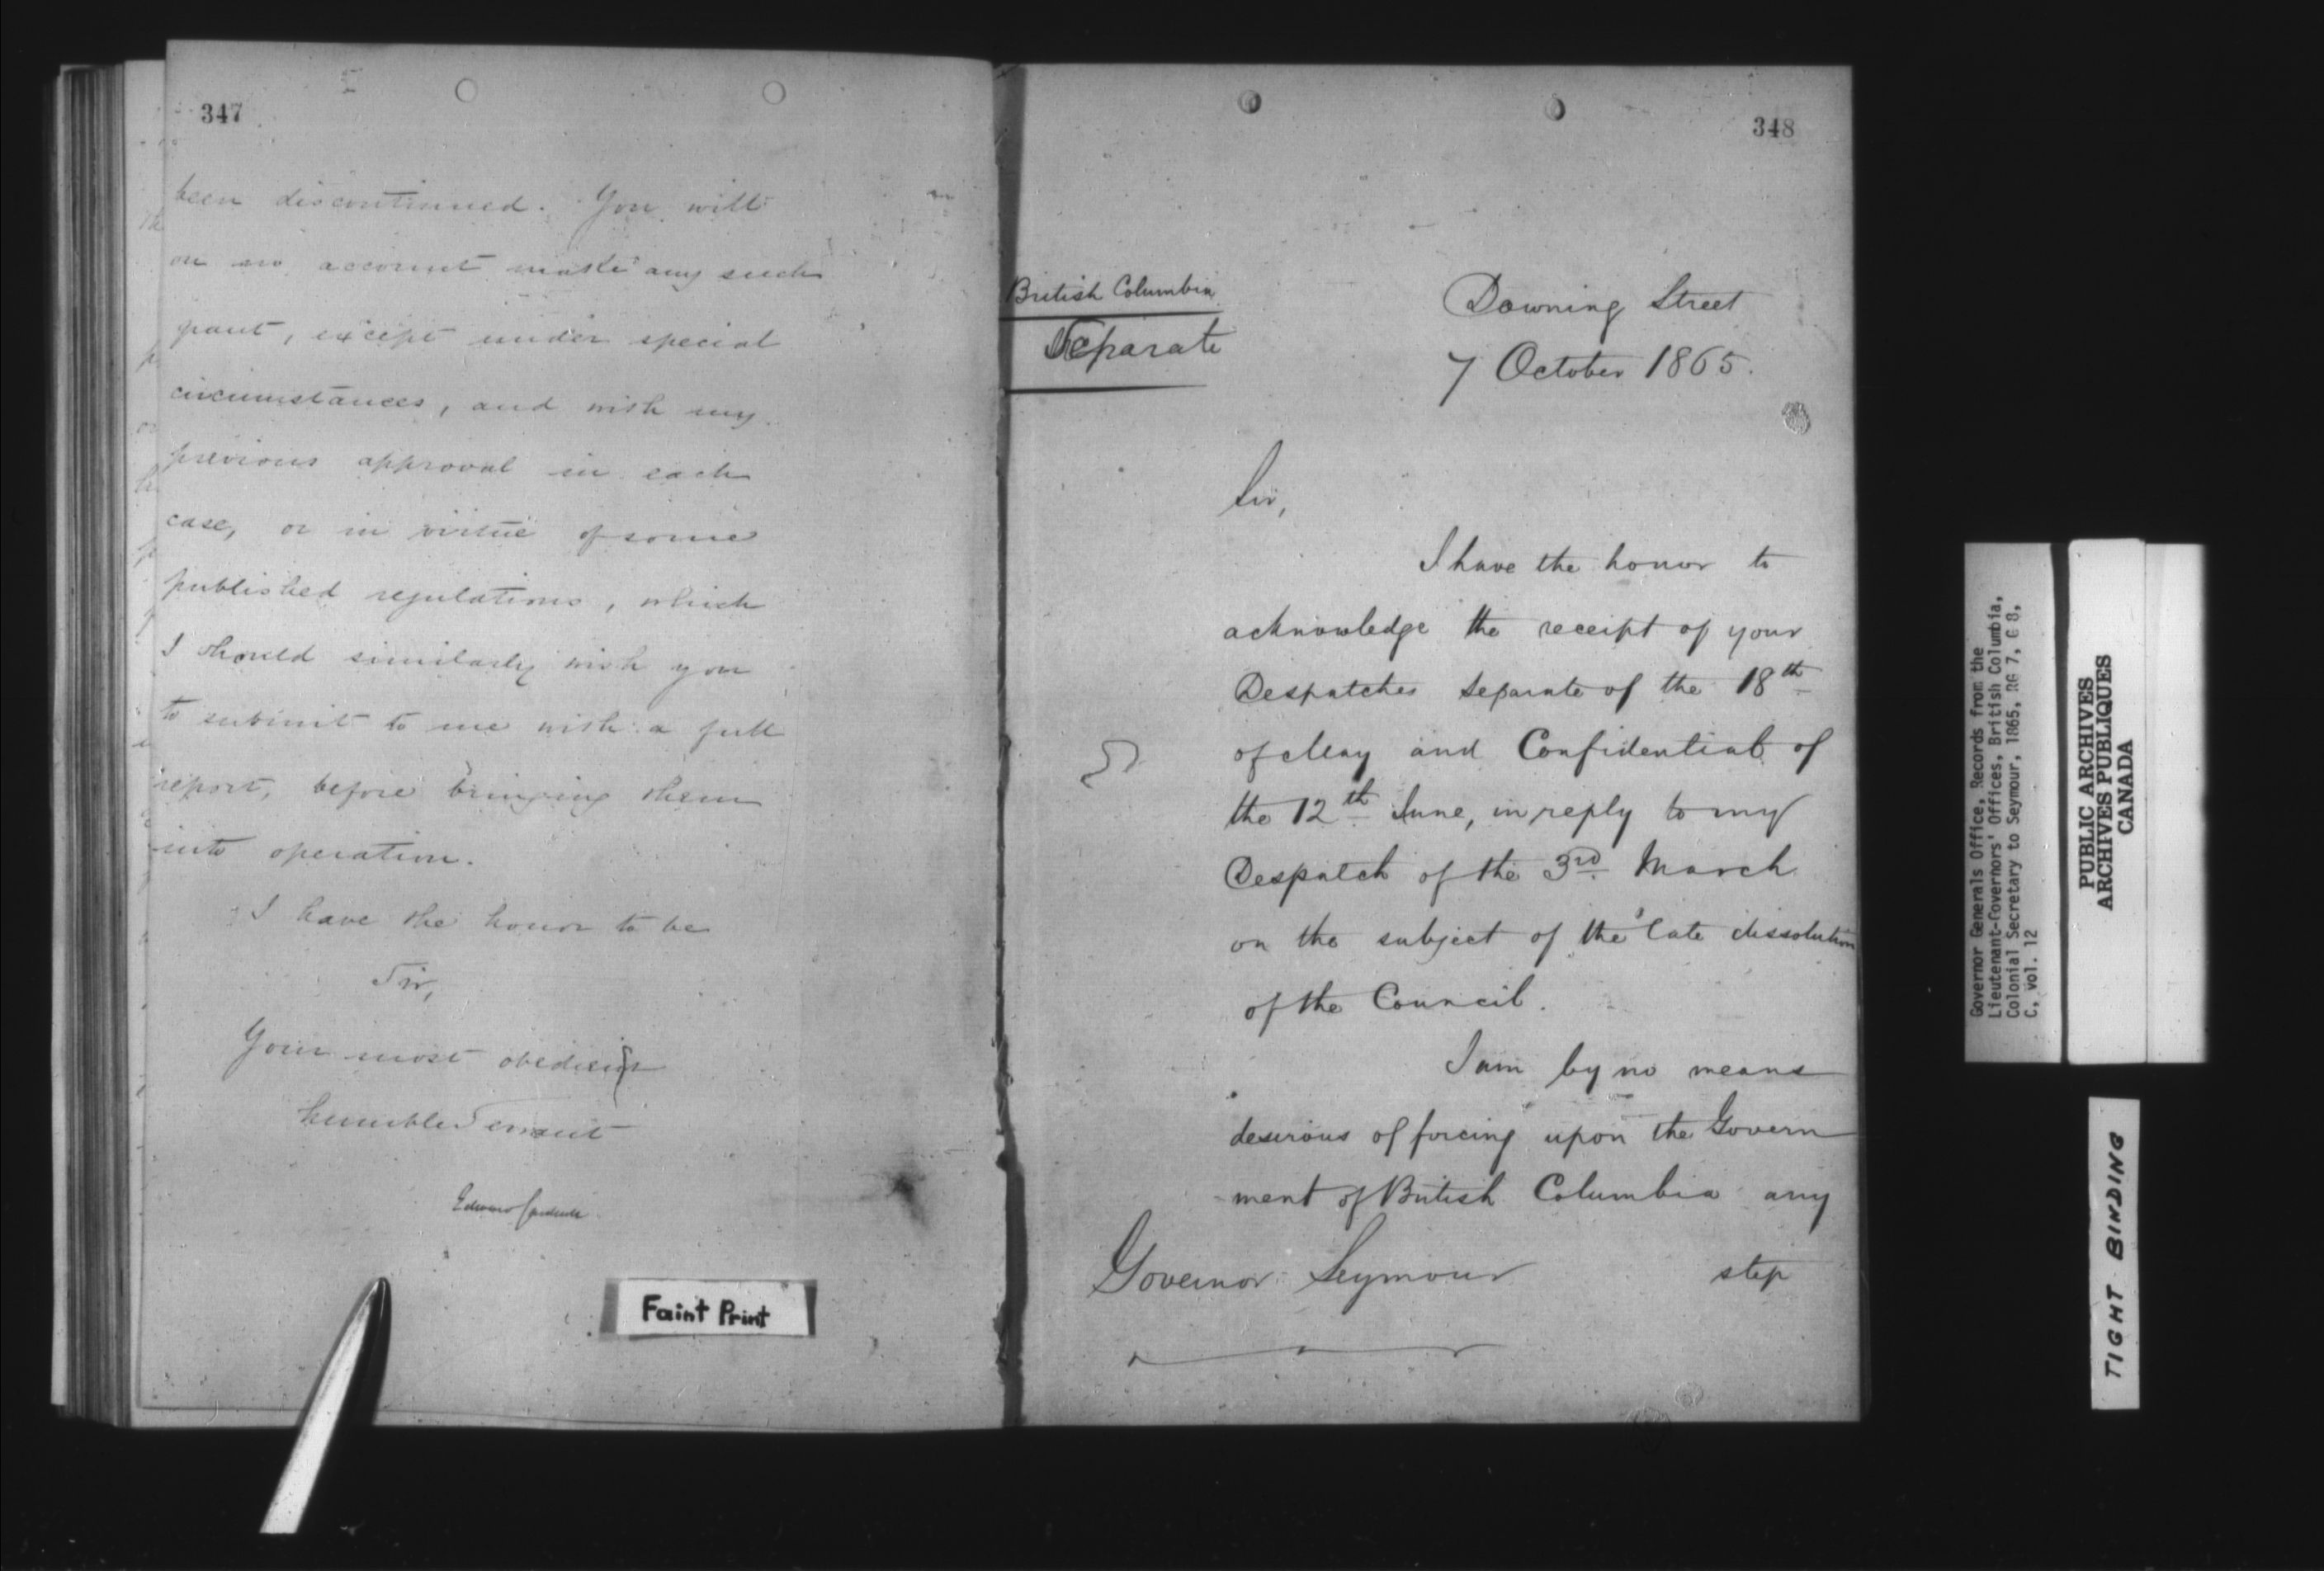 347
been discontinued. You will
on no account make any such
grant, except under special
circumstances, and with my
previous approval in each
case, or in virtue of some
published regulations, which
I should similarly wish you
to submit to me with a full
report, before bringing them
into operation.
I have the honor to be
Sir,
Your most obedient
humble Servant
Edward Cardwell
Faint Print
348
British Columbia
Separate
Downing Street
7 October 1865.
Sir,
I have the honor to
acknowledge the receipt of your
Despatches Separate of the 18th
of May and Confidential of
the 12th June, in reply to my
Despatch of the 3rd March
on the subject of the late dissolution
of the Council.
I am by no means
desirous of forcing upon the Govern
ment of British Columbia any
Governor Seymour step
Governor Generals Office, Records from the
Lieutenant-Governors' Offices, British Columbia,
Colonial Secretary to Seymour, 1865, RG 7, G 8,
C, vol. 12
PUBLIC ARCHIVES
ARCHIVES PUBLIQUES
CANADA
TIGHT BINDING